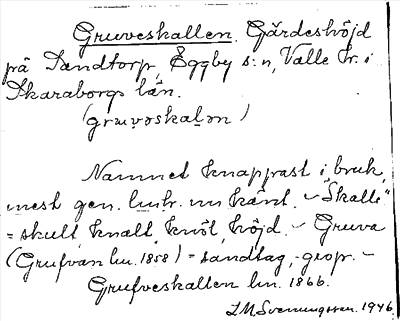 Gruveskallen. Gärdeshöjd
på Sandtorp, Eggby s:n, Valle hr. i
Skaraborgs län.
(gruvəskalən)
Namnet knappast i bruk,
mest gen. lmhr. nu känt. – "Skalle"
= skult, knalt, knöl, höjd. – Gruva
(Grufvan lm. 1858) = sandtag, -grop. –
Grufveskallen lm. 1866.
I.M. Svenungsson. 1946